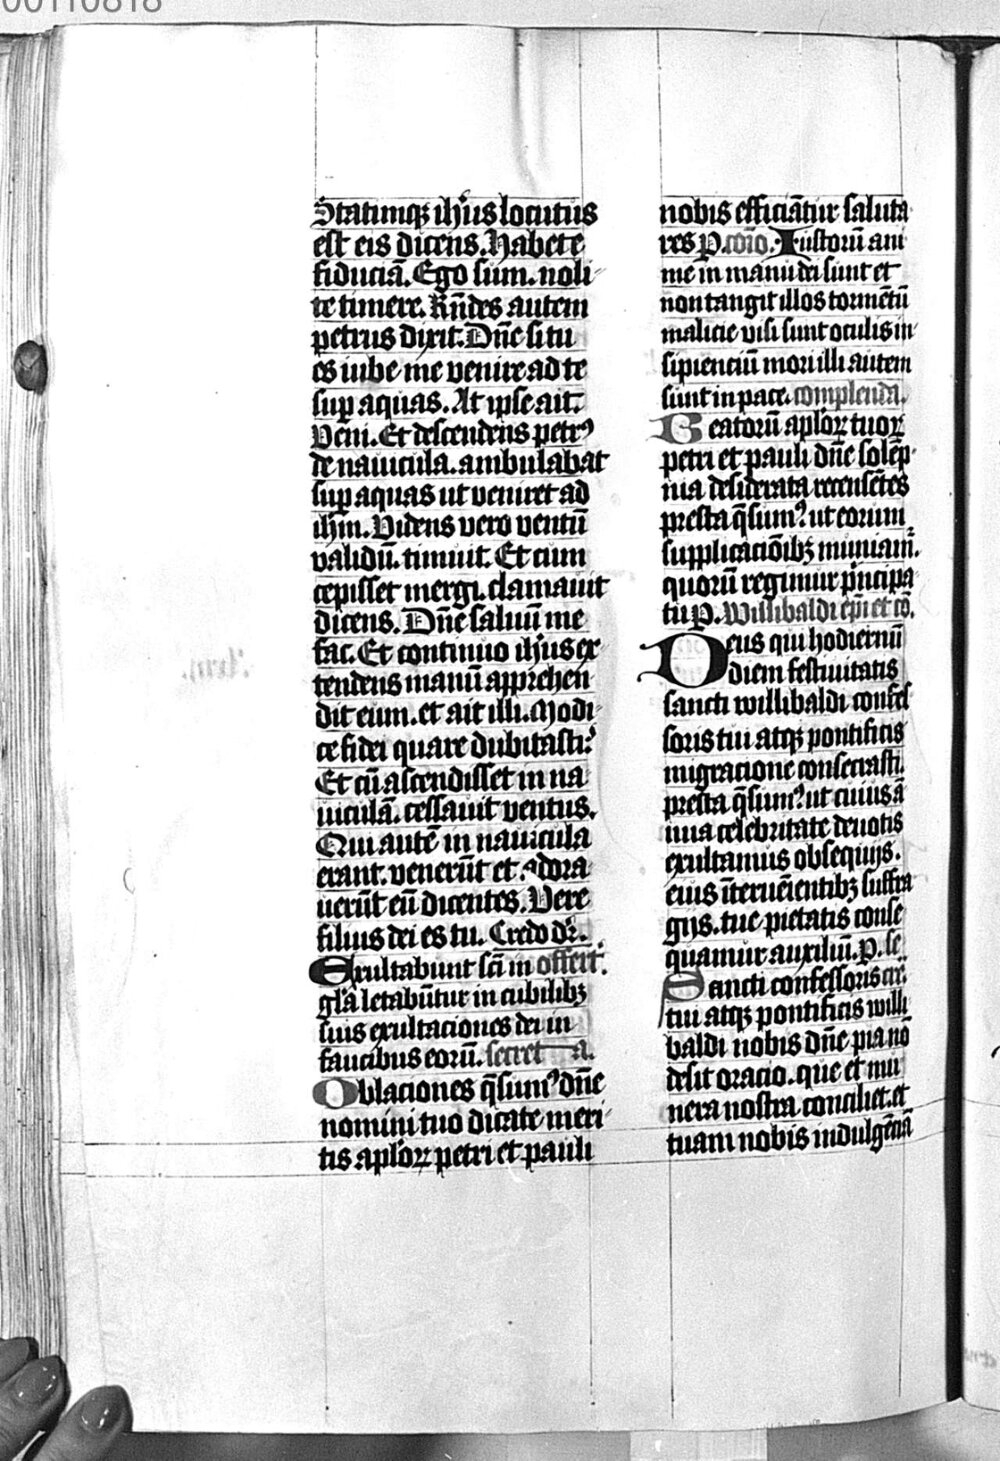 00110818
Statimqꝫ ih̓us locutus
est eis dicens. Habete
fiduciā. Ego sum. noli
te timere. Rn̄des autem
petrus dixit. Dn̄e si tu
es iube me venire ad te
sup aquas. At ipse ait.
Veni. Et descendens petrꝰ
de nauicula. ambulabat
sup aquas ut veniret ad
ih̄m. Videns vero ventū
validū. timuit. Et cum
cepisset mergi. clamauit
dicens. Dn̄e saluū me
fac. Et continuo ih̓us ex
tendens manū apprehen
dit eum. et ait illi. Modi
ce fidei quare dubitasti?
Et cū ascendisset in na
uiculā. cessauit ventus.
Qui autē in nauicula
erant. venerūt et adora
uerūt eū dicentes. Vere
filius dei es tu. Credo dr̄.
Exultabunt sc̄i in offert.
gl̄a letabūtur in cubilibꝫ
suis exultaciones dei in
faucibus eorū. secreta.
Oblaciones q̄sumꝰ dn̄e
nomini tuo dicate meri
tis apl̓oꝝ petri et pauli
nobis efficiātur saluta
res P. cōio. Iustorū ani
me in manu dei sunt et
non tangit illos tormētū
malicie visi sunt oculis in
sipienciū mori illi autem
sunt in pace. complenda.
Beatorū apl̓oꝝ tuoꝝ
petri et pauli dn̄e solēp
nia desiderata recensētes
presta q̄sumꝰ. ut eorum
supplicacōibꝫ muniamꝛ.
quorū regimur p̓ncipa
tu P. Willibaldi ep̄i et cō.
Deus qui hodiernū
diem festiuitatis
sancti willibaldi confes
soris tui atqꝫ pontificis
migracione consecrasti.
presta q̄sumꝰ. ut cuius ā
nua celebritate deuotis
exultamus obsequijs.
eius īteruēientibꝫ suffra
gijs. tue pietatis conse
quamur auxiliū. P. se.
Sancti confessoris
tui atqꝫ pontificis willi
baldi nobis dn̄e pia nō
desit oracio. que et mu
nera nostra conciliet. et
tuam nobis indulgēciā